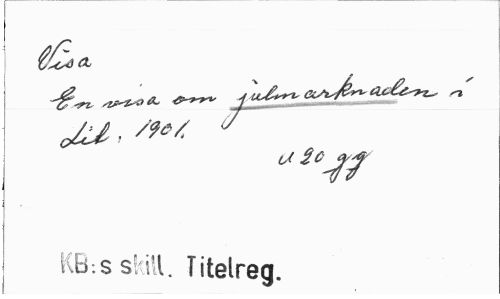 Visa
En visa om julmarknaden i
Lit. 1901.
U 20 gg
KB:s skill. Titelreg.